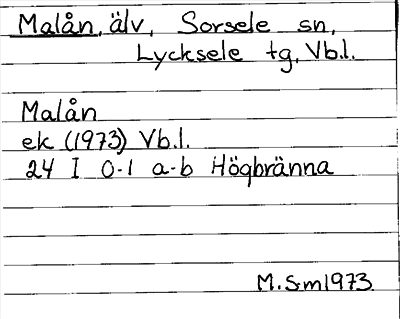 Malån, älv, Sorsele sn,
Lycksele tg, Vb.l.
Malån
ek (1973) Vb.l.
24 I 0-1 a-b Högbränna
M.Sm1973